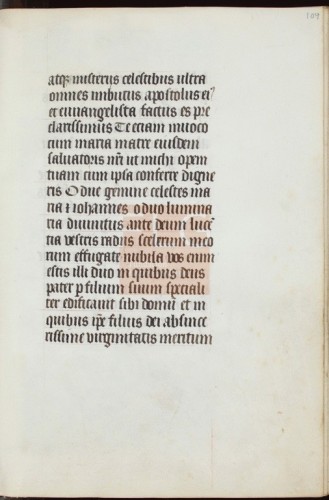 109
atq3 misteriis celestibus ultra
omnes imbutus apostolus ei9
et euuangelista factus es pre
clarissimus Te etiam inuoco
cum maria matre eiusdem
saluatoris nr̄i ut michi opem
tuam cum ipsa conferre digne
ris O due gemine celestes ma
ria & iohannes o duo lumina
ria diuinitus ante deum lucē
tia vestris radiis scelerum meo
rum effugate nubila vos enim
estis illi duo in quibus deus
pater p filium suum speciali
ter edificauit sibi domū et in
quibus ip̄e filius dei ob since
rissime virginitatis meritum